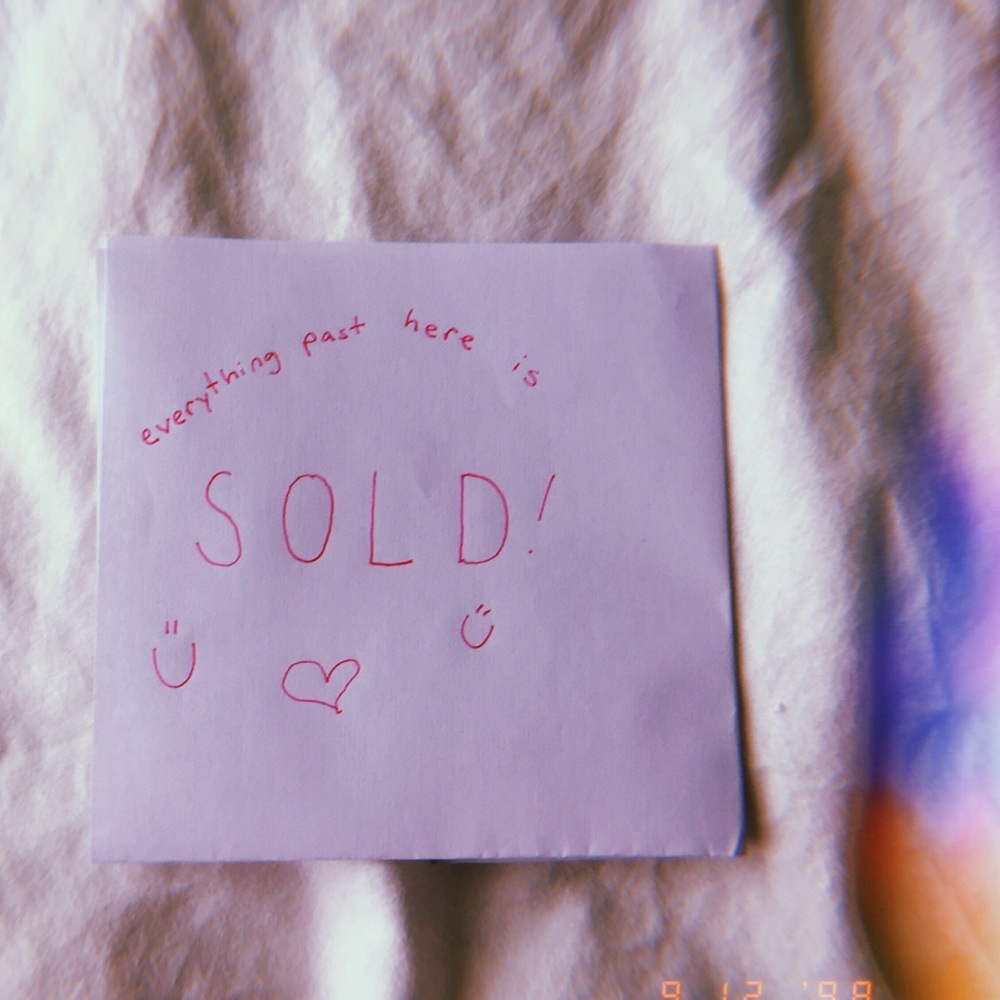 everything past here is
SOLD!
9 12 '98